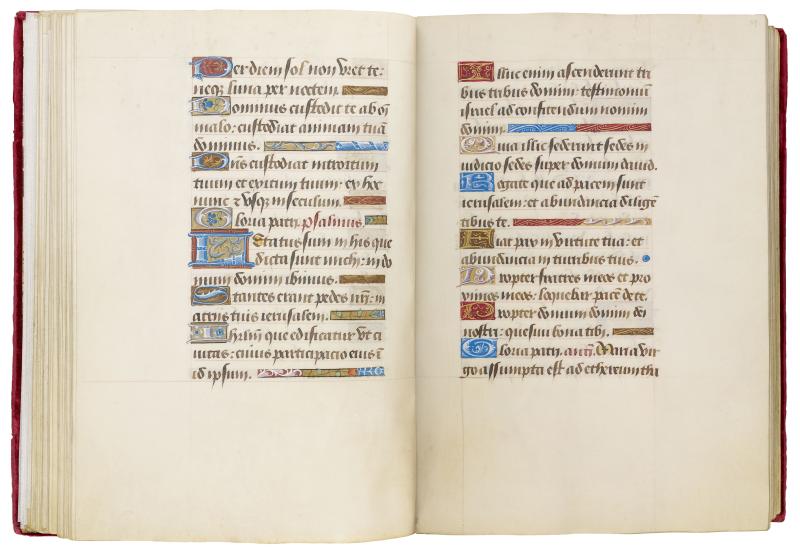 Per diem sol non uret te:
neq; luna per noctem.
Dominus custodit te ab oi
malo: custodiat animam tuā
dominus.
Dn̄s custodiat introitum
tuum et exitum tuum: ex hoc
nunc & usq; in seculum.
Gloria patri. psalmus.
Letatus sum in his que
dicta sunt michi: in do
mum domini ibimus.
Stantes erant pedes nr̄i: in
atriis tuis ierusalem.
Ihrlm̄ que edificatur ut ci
uitas: cuius participacio eius ī
id ipsum.
Illuc enim ascenderunt tri
bus tribus domini: testimoniū
israel ad confitendum nomini
domini.
Quia illic sederunt sedes in
iudicio sedes super domum dauid.
Rogate que ad pacem sunt
ierusalem: et abundancia diligē
tibus te.
Fiat pax in uirtute tua: et
abundancia in turribus tuis.
Propter fratres meos et pro
ximos meos: loquebar pacē de te.
Propter domum domini dei
nostri: quesiui bona tibi.
Gloria patri. an̄. Maria uir
go assumpta est ad ethereum tha